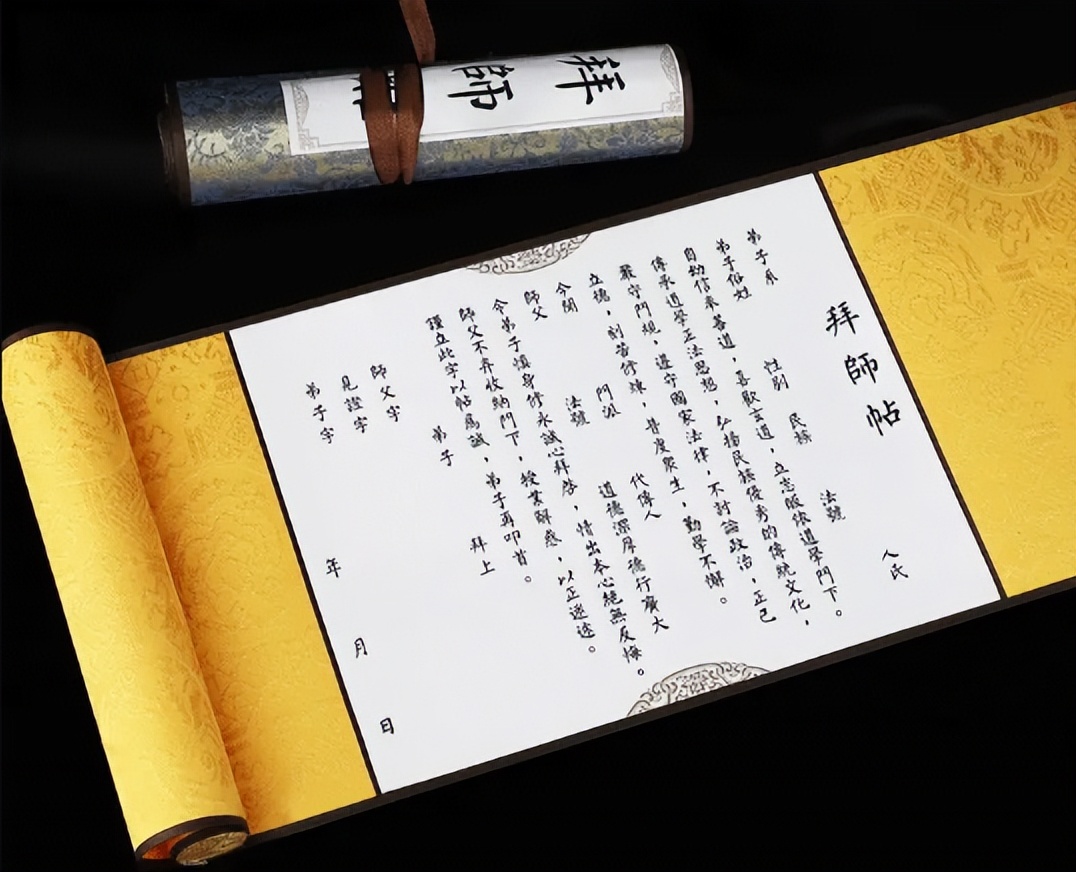 拜師
拜師帖
弟子系 人民
弟子俗姓 性別 民族 法號
自幼信奉善道，喜歡玄道，立志皈依道學門下。
傳承道學正法思想，弘揚民族優秀的傳統文化，
嚴守門規，遵守國家法律，不討論政治，正己
立德，刻苦修煉，普度眾生，勤學不懈。
今聞 門派 代傳人
師父 法號 道德深厚德行廣大
今弟子慎身修永誠心拜啓，情出本心絕無反悔。
師父不弃收納門下，授業解惑，以正迷途。
謹立此字以帖為誠，弟子再叩首。
弟子 拜上
師父字
見證字
弟子字
年 月 日